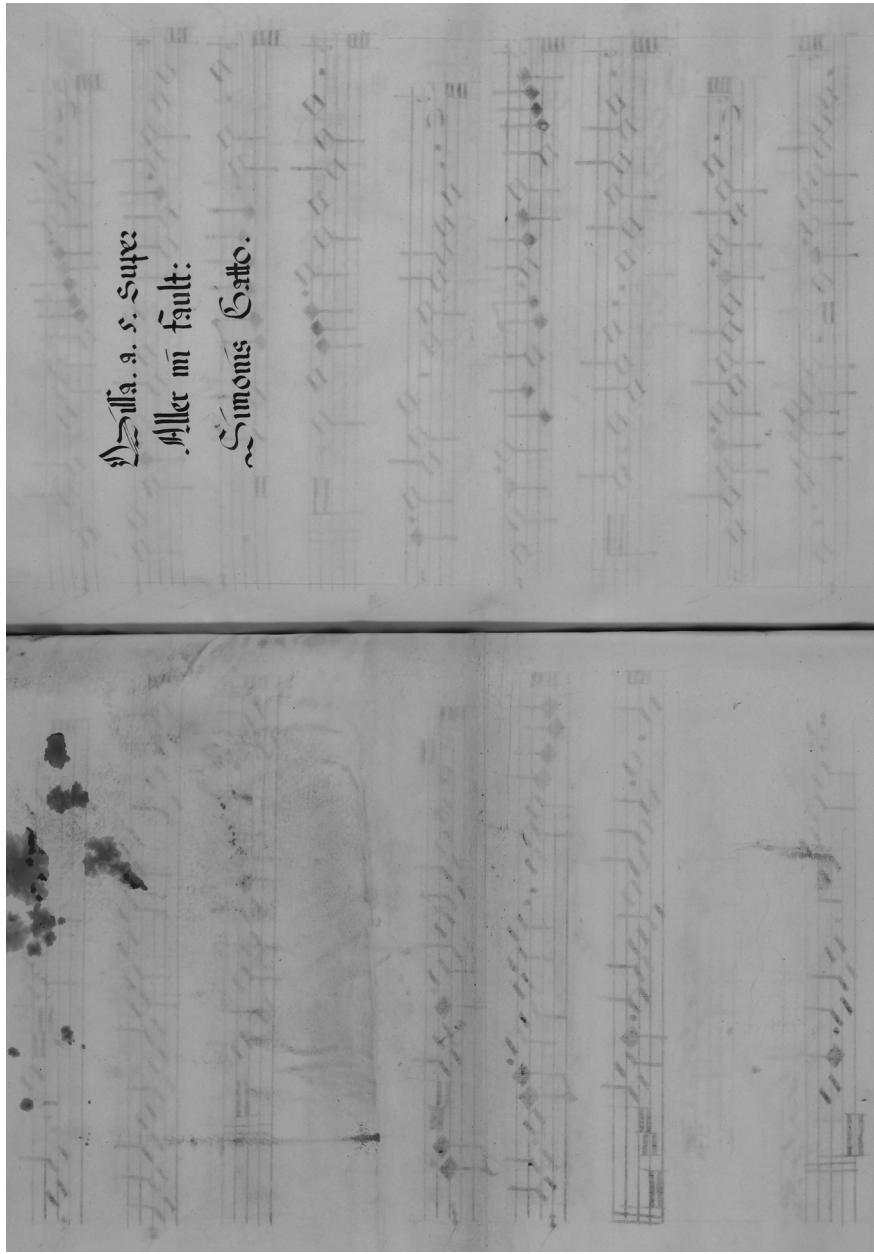 Missa. a. 5. Super
Aller mi fault:
Simonis Gatto.